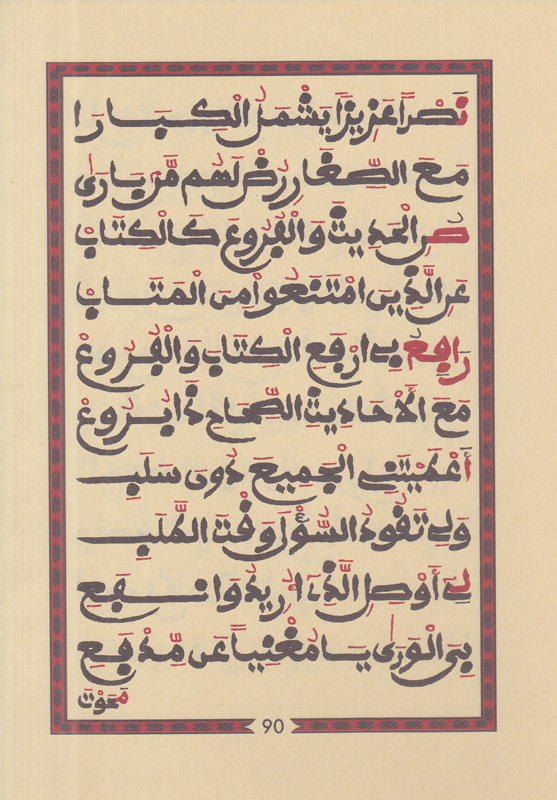 نَصْراً عَزِيزاً يَشْمَلُ الْكِبَارَا
مَعَ الصِّغَارِ رُضْ لَهُم مَّن بَارَى
صُنِ الْحَدِيثَ وَالْفُرُوعَ كَالْكِتَابْ
عَنِ الَّذِينَ امْتَنَعُوا مِنَ الْمَتَابْ
رَافِعُ بِيَ ارْفَعِ الْكِتَابَ وَالْفُرُوعْ
مَعَ الْأَحَادِيثِ الصِّحَاحِ ذَا بُرُوعْ
أَعْطَيْتَنِي الْجَمِيعَ دُونَ سَلَبِ
وَلِي تَقُودُ السُّؤْلَ وَقْتَ الطَّلَبِ
لِي أَوْصِلِ الَّذِي أُرِيدُ وَانْفَعِ
بِيَ الْوَرَى يَا مُغْنِياً عَن مِّدْفَعِ
مَحَوْتَ
90